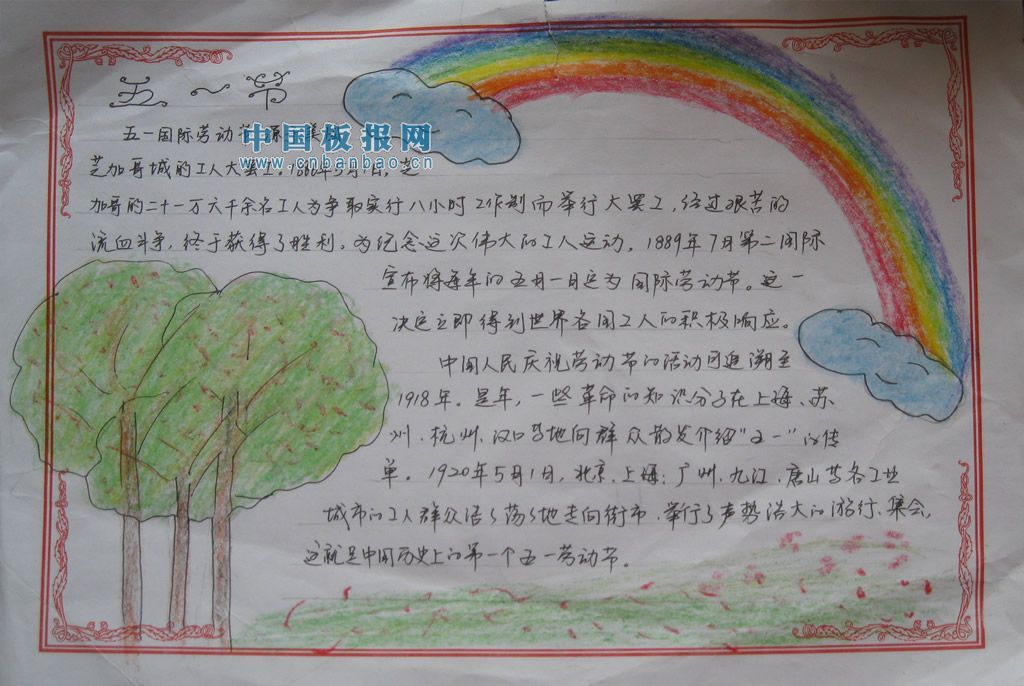 五一节
五一国际劳动节源
中国板报网
www.cnbanbao.cn
芝加哥城的工人大罢工。1886年5月1日，芝
加哥的二十一万六千余名工人为争取实行八小时工作制而举行大罢工，经过艰苦的
流血斗争，终于获得了胜利。为纪念这次伟大的工人运动，1889年7月第二国际
宣布将每年的五月一日定为国际劳动节。这一
决定立即得到世界各国工人的积极响应。
中国人民庆祝劳动节的活动可追溯至
1918年。是年，一些革命的知识分子在上海、苏
州、杭州、汉口等地向群众散发介绍“五一”的传
单。1920年5月1日，北京、上海、广州、九江、唐山等各工业
城市的工人群众浩浩荡荡地走向街市、举行了声势浩大的游行、集会，
这就是中国历史上的第一个五一劳动节。